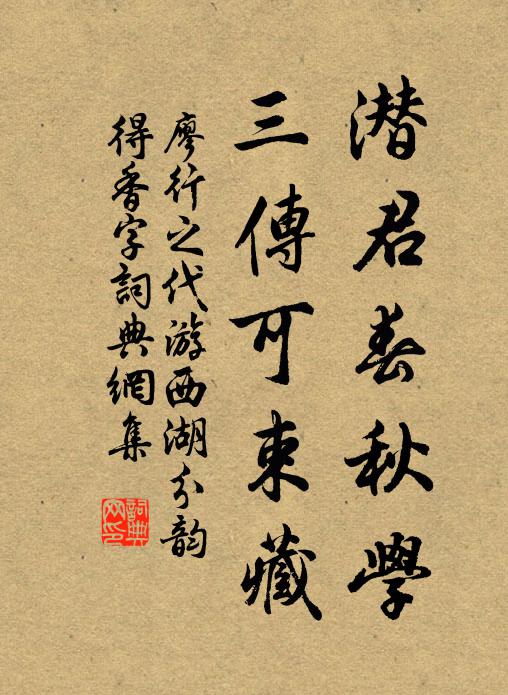 潜君春秋學
三傳可束藏
廖行之代游西湖分韵
得香字詞典網集
詞典
网印